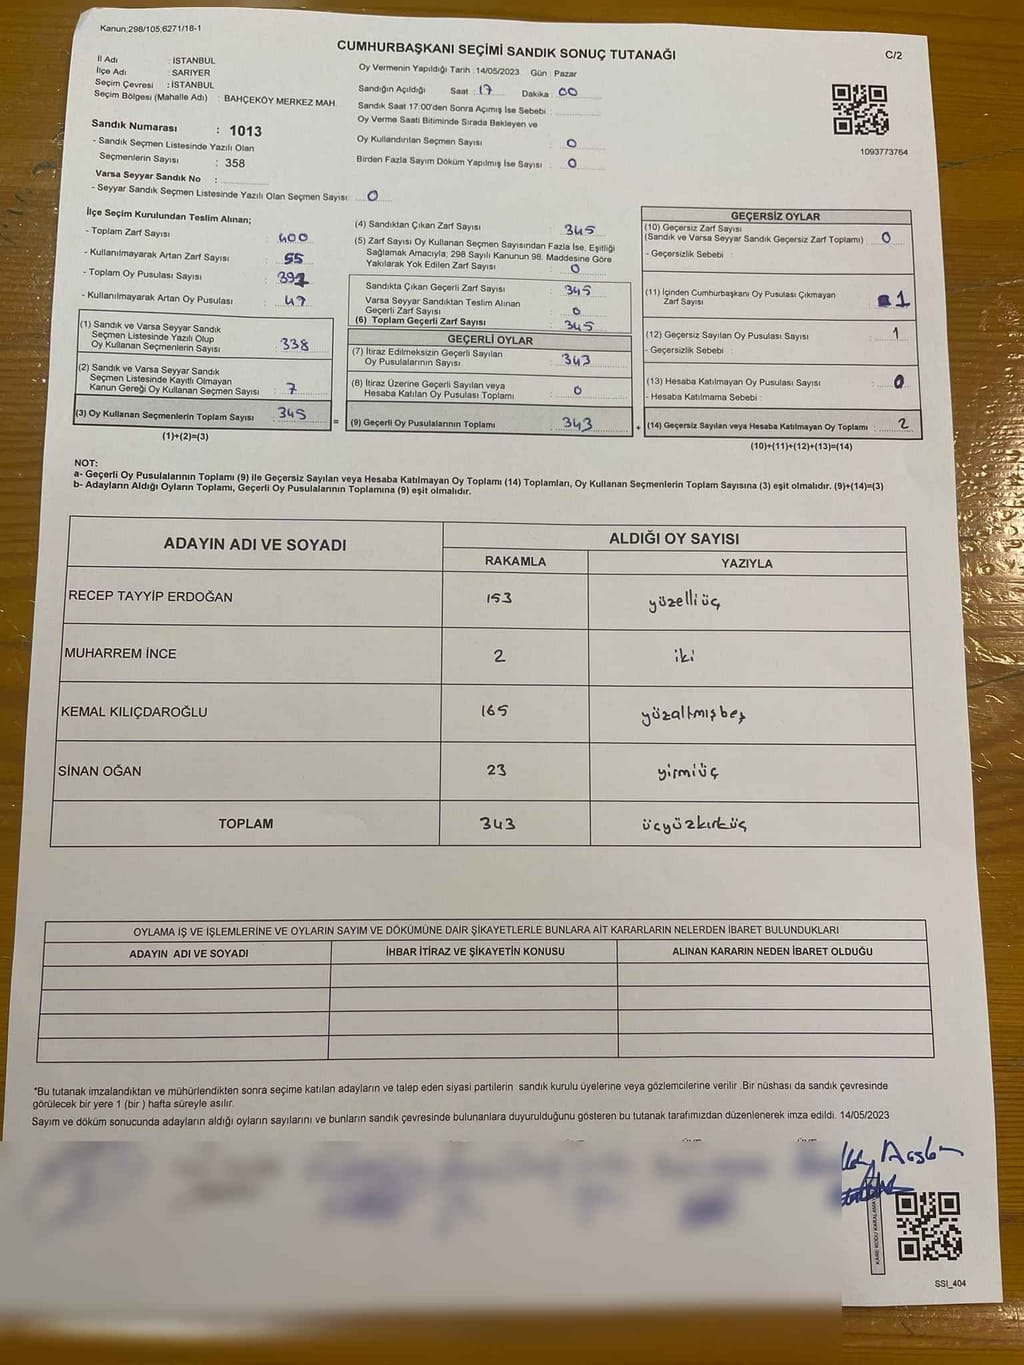 Kanun;298/105;6271/18-1
CUMHURBAŞKANI SEÇİMİ SANDIK SONUÇ TUTANAĞI
C/2
İl Adı : İSTANBUL
İlçe Adı : SARIYER
Seçim Çevresi : İSTANBUL
Seçim Bölgesi (Mahalle Adı) : BAHÇEKÖY MERKEZ MAH.
Sandık Numarası : 1013
- Sandık Seçmen Listesinde Yazılı Olan
Seçmenlerin Sayısı : 358
Varsa Seyyar Sandık No :
- Seyyar Sandık Seçmen Listesinde Yazılı Olan Seçmen Sayısı: 0
Oy Vermenin Yapıldığı Tarih :14/05/2023 Gün : Pazar
Sandığın Açıldığı Saat : 17 Dakika : 00
Sandık Saat 17:00'den Sonra Açımış İse Sebebi :
Oy Verme Saati Bitiminde Sırada Bekleyen ve
Oy Kullandırılan Seçmen Sayısı : 0
Birden Fazla Sayım Döküm Yapılmış İse Sayısı : 0
1093773764
İlçe Seçim Kurulundan Teslim Alınan;
- Toplam Zarf Sayısı : 400
- Kullanılmayarak Artan Zarf Sayısı : 55
- Toplam Oy Pusulası Sayısı : 392
- Kullanılmayarak Artan Oy Pusulası : 47
(1) Sandık ve Varsa Seyyar Sandık
Seçmen Listesinde Yazılı Olup
Oy Kullanan Seçmenlerin Sayısı : 338
(2) Sandık ve Varsa Seyyar Sandık
Seçmen Listesinde Kayıtlı Olmayan
Kanun Gereği Oy Kullanan Seçmen Sayısı : 7
(3) Oy Kullanan Seçmenlerin Toplam Sayısı : 345
(1)+(2)=(3)
(4) Sandıktan Çıkan Zarf Sayısı : 345
(5) Zarf Sayısı Oy Kullanan Seçmen Sayısından Fazla İse, Eşitliği
Sağlamak Amacıyla; 298 Sayılı Kanunun 98. Maddesine Göre
Yakılarak Yok Edilen Zarf Sayısı : 0
Sandıkta Çıkan Geçerli Zarf Sayısı : 345
Varsa Seyyar Sandıktan Teslim Alınan
Geçerli Zarf Sayısı : 0
(6) Toplam Geçerli Zarf Sayısı : 345
GEÇERLİ OYLAR
(7) İtiraz Edilmeksizin Geçerli Sayılan
Oy Pusulalarının Sayısı : 343
(8) İtiraz Üzerine Geçerli Sayılan veya
Hesaba Katılan Oy Pusulası Toplamı : 0
= (9) Geçerli Oy Pusulalarının Toplamı : 343 +
GEÇERSİZ OYLAR
(10) Geçersiz Zarf Sayısı
(Sandık ve Varsa Seyyar Sandık Geçersiz Zarf Toplamı) : 0
- Geçersizlik Sebebi :
(11) İçinden Cumhurbaşkanı Oy Pusulası Çıkmayan
Zarf Sayısı : 1
(12) Geçersiz Sayılan Oy Pusulası Sayısı : 1
- Geçersizlik Sebebi :
(13) Hesaba Katılmayan Oy Pusulası Sayısı : 0
- Hesaba Katılmama Sebebi :
(14) Geçersiz Sayılan veya Hesaba Katılmayan Oy Toplamı : 2
(10)+(11)+(12)+(13)=(14)
NOT:
a- Geçerli Oy Pusulalarının Toplamı (9) ile Geçersiz Sayılan veya Hesaba Katılmayan Oy Toplamı (14) Toplamları, Oy Kullanan Seçmenlerin Toplam Sayısına (3) eşit olmalıdır. (9)+(14)=(3)
b- Adayların Aldığı Oyların Toplamı, Geçerli Oy Pusulalarının Toplamına (9) eşit olmalıdır.
ADAYIN ADI VE SOYADI
ALDIĞI OY SAYISI
RAKAMLA YAZIYLA
RECEP TAYYİP ERDOĞAN 153 yüzelliüç
MUHARREM İNCE 2 iki
KEMAL KILIÇDAROĞLU 165 yüzaltmışbeş
SİNAN OĞAN 23 yirmiüç
TOPLAM 343 üçyüzkırküç
OYLAMA İŞ VE İŞLEMLERİNE VE OYLARIN SAYIM VE DÖKÜMÜNE DAİR ŞİKAYETLERLE BUNLARA AİT KARARLARIN NELERDEN İBARET BULUNDUKLARI
ADAYIN ADI VE SOYADI İHBAR İTİRAZ VE ŞİKAYETİN KONUSU ALINAN KARARIN NEDEN İBARET OLDUĞU
*Bu tutanak imzalandıktan ve mühürlendikten sonra seçime katılan adayların ve talep eden siyasi partilerin sandık kurulu üyelerine veya gözlemcilerine verilir .Bir nüshası da sandık çevresinde
görülecek bir yere 1 (bir ) hafta süreyle asılır.
Sayım ve döküm sonucunda adayların aldığı oyların sayılarını ve bunların sandık çevresinde bulunanlara duyurulduğunu gösteren bu tutanak tarafımızdan düzenlenerek imza edildi. 14/05/2023
SSİ_404